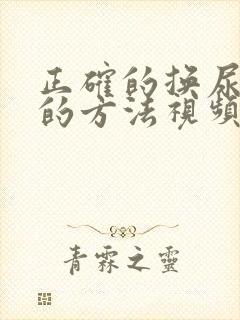 正確的換尿
的方法視頻
青霖之靈